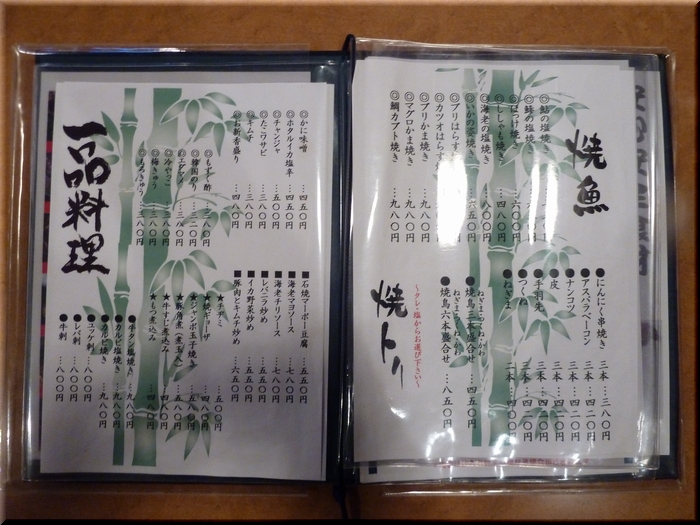 焼魚
◎鮭の塩焼
◎鯖の塩焼
◎ほっけ焼き …六〇〇円
◎ししゃも焼き …四八〇円
◎海老の塩焼き
◎いかの姿焼き …六五〇円
◎ブリはらす
◎カツオはらす
◎ブリかま焼き …九八〇円
◎マグロかま焼き …九八〇円
◎鯛カブト焼き …九八〇円
焼トリ
〜タレ・塩からお選び下さい〜
●にんにく串焼き 二本…三八〇円
●アスパラベーコン 二本…四二〇円
●ナンコツ 二本…四二〇円
●皮
●手羽先
●つくね
●ねぎま
●焼鳥三本盛合せ
ねぎま・つくね・かわ
●焼鳥六本盛合せ …八五〇円
ねぎま・つくね・かわ
一品料理
◎かに味噌 …四五〇円
◎ホタルイカ塩辛 …四五〇円
◎チャンジャ …五〇〇円
◎たこワサビ …三八〇円
◎キムチ …三八〇円
◎お新香盛り …四八〇円
◎もずく酢 …三八〇円
◎韓国のり …三二〇円
◎エダマメ …三八〇円
◎冷やっこ …三八〇円
◎梅きゅう …三八〇円
◎もろきゅう …三八〇円
■石焼マーボー豆腐 …五五〇円
■海老マヨソース …七八〇円
■海老チリソース …七八〇円
■レバニラ炒め …五五〇円
■イカ野菜炒め …五五〇円
■豚肉とキムチ炒め …六五〇円
★チヂミ …五〇〇円
★焼ギョーザ …四八〇円
★ジャンボ玉子焼き …五八〇円
★豚角煮(煮玉入)
★牛すじ煮込み
★もつ煮込み
●牛タン塩焼き …九八〇円
●カルビ塩焼き …九八〇円
●カルビ焼き …九八〇円
●ユッケ刺 …八〇〇円
●レバ刺 …八〇〇円
●牛刺 …八〇〇円